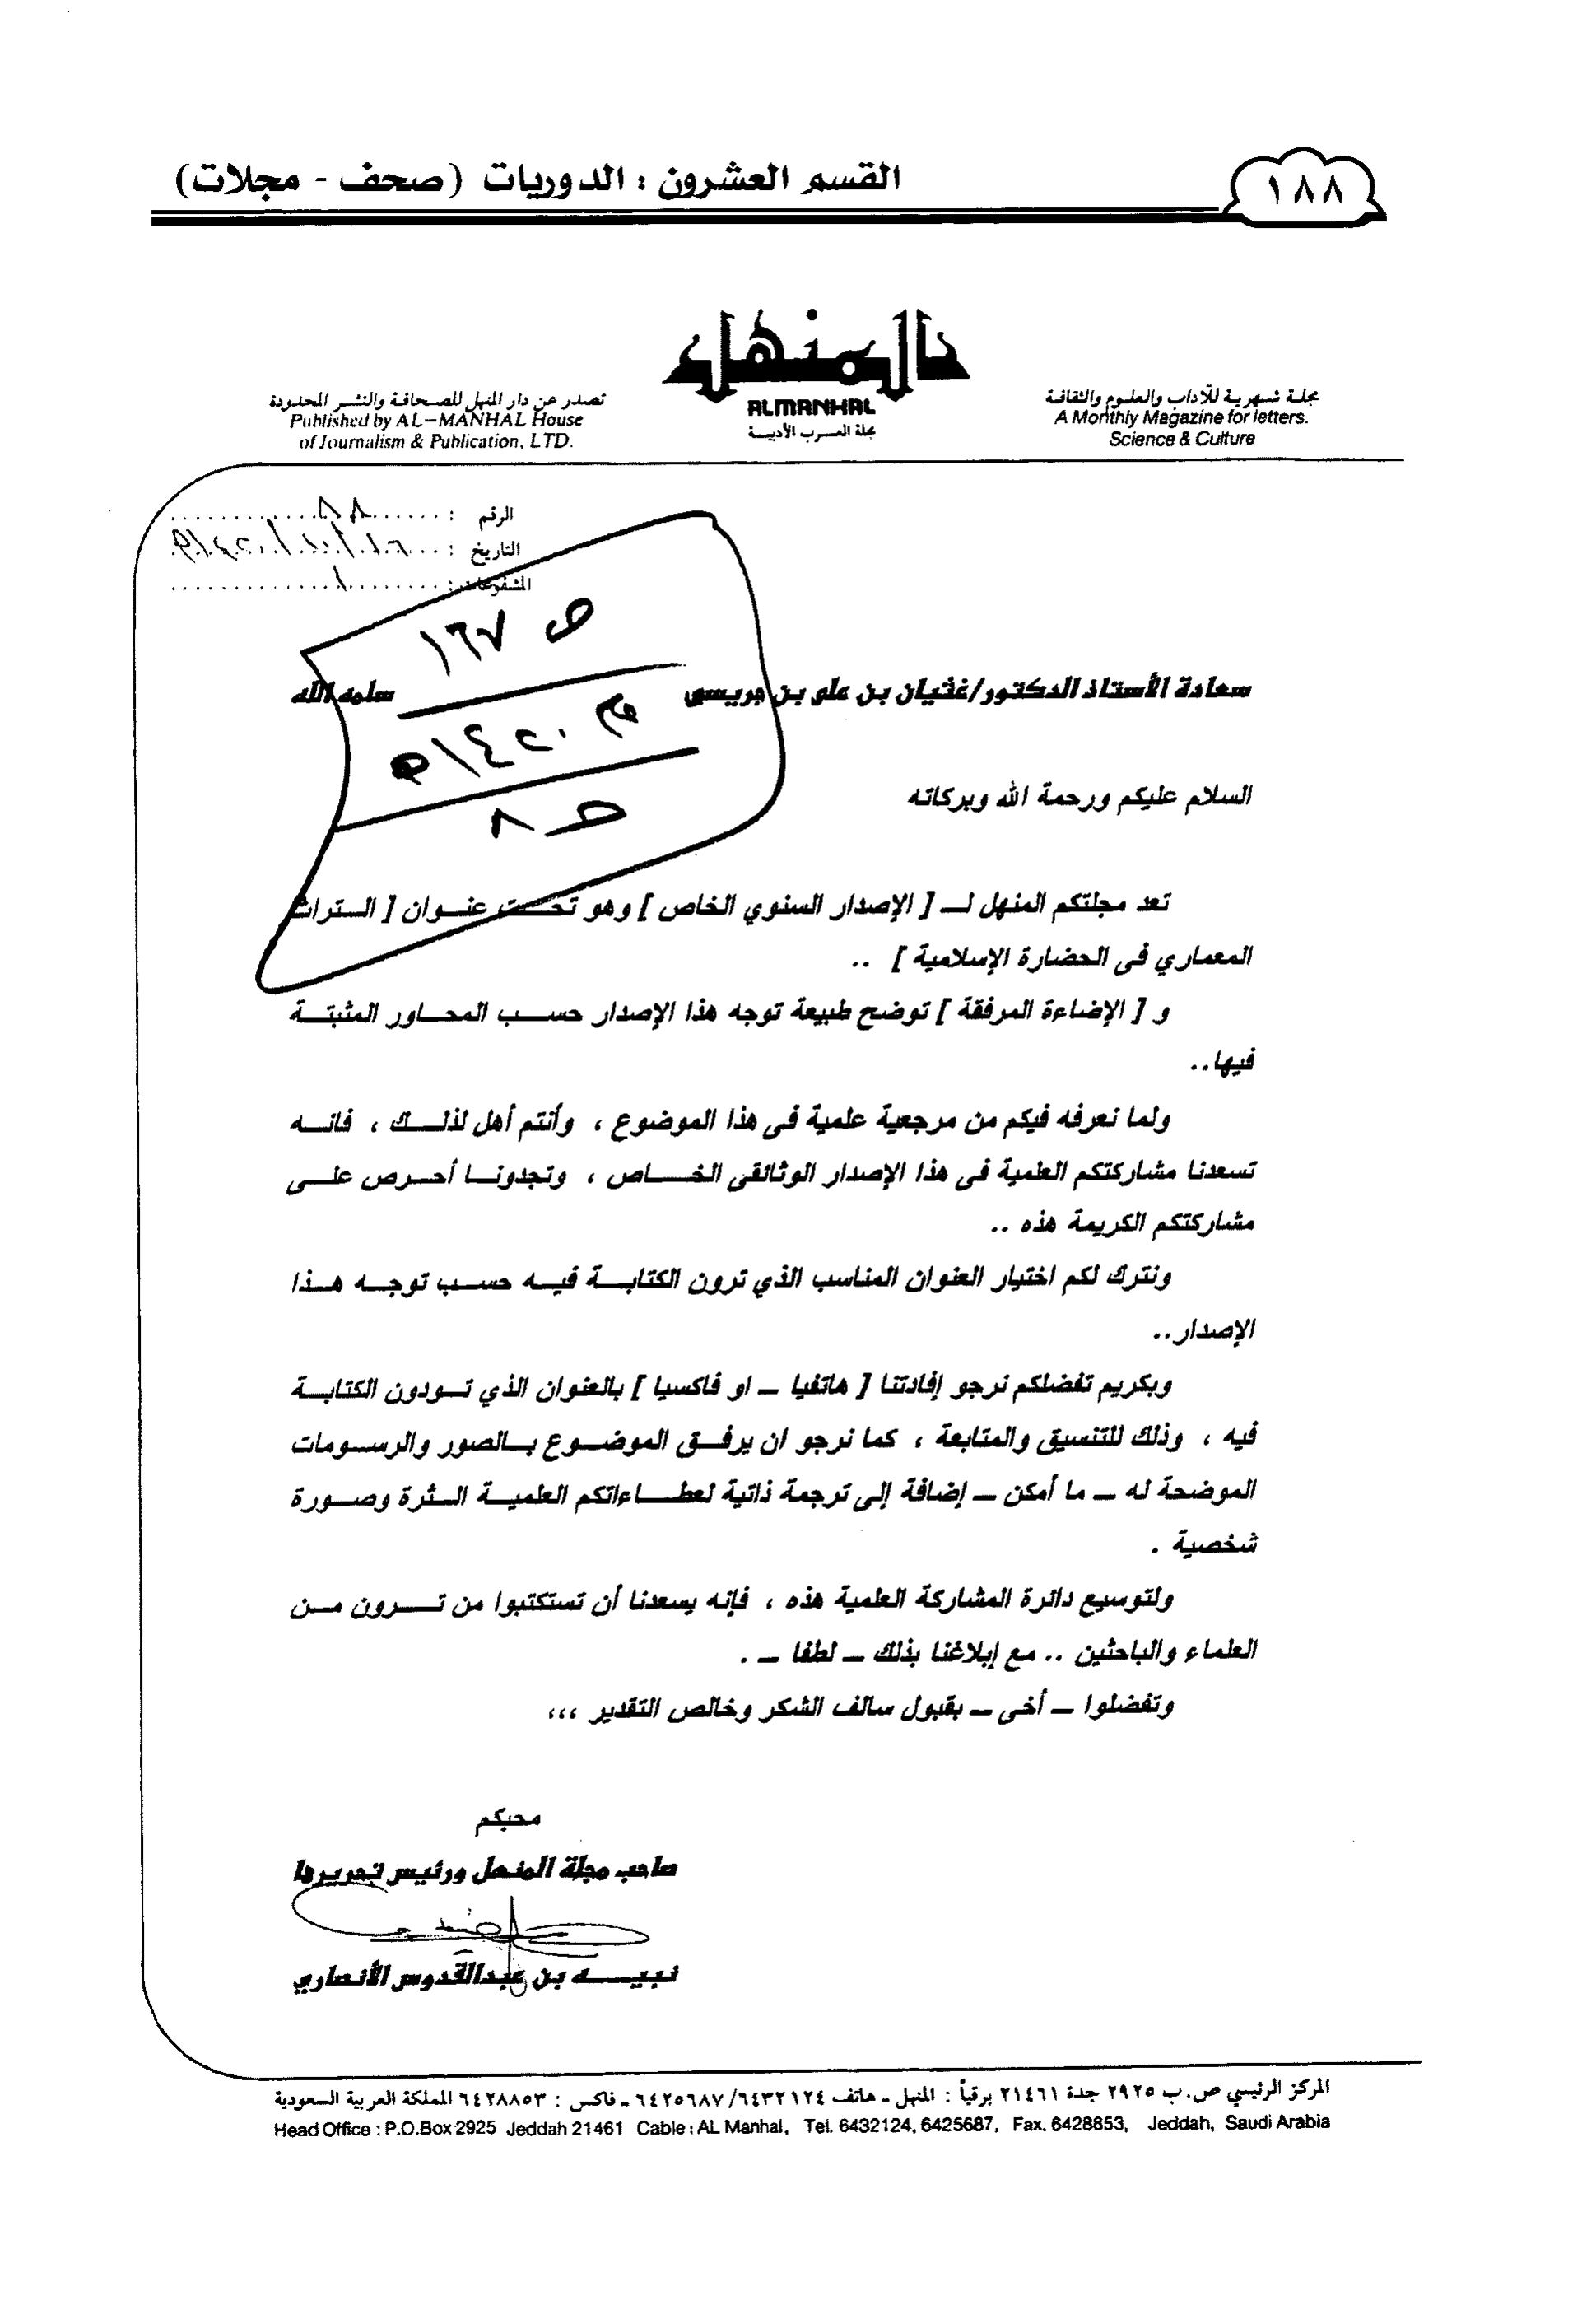 ١٨٨
القسم العشرون : الدوريات (صحف - مجلات)
المنهل
ALMANHAL
مجلة العرب الأدبية
مجلة شهرية للآداب والعلوم والثقافة
A Monthly Magazine for letters.
Science & Culture
تصدر عن دار المنهل للصحافة والنشر المحدودة
Published by AL-MANHAL House
of Journalism & Publication, LTD.
الرقم :
التاريخ :
المشفوعات : ١
ص ١٦٧
م ١٤٢٠هـ
ح ٨
سعادة الأستاذ الدكتور/غثيان بن علي بن جريسى سلمه الله
السلام عليكم ورحمة الله وبركاته
تعد مجلتكم المنهل لـ [ الإصدار السنوي الخاص ] وهو تحت عنوان [ التراث
المعماري فى الحضارة الإسلامية ] ..
و [ الإضاءة المرفقة ] توضح طبيعة توجه هذا الإصدار حسب المحاور المثبتة
فيها..
ولما نعرفه فيكم من مرجعية علمية فى هذا الموضوع ، وأنتم أهل لذلك ، فانه
تسعدنا مشاركتكم العلمية فى هذا الإصدار الوثائقى الخاص ، وتجدونا أحرص على
مشاركتكم الكريمة هذه ..
ونترك لكم اختيار العنوان المناسب الذي ترون الكتابة فيه حسب توجه هذا
الإصدار..
وبكريم تفضلكم نرجو إفادتنا [ هاتفيا – او فاكسيا ] بالعنوان الذي تودون الكتابة
فيه ، وذلك للتنسيق والمتابعة ، كما نرجو ان يرفق الموضوع بالصور والرسومات
الموضحة له – ما أمكن – إضافة إلى ترجمة ذاتية لعطاءاتكم العلمية الثرة وصورة
شخصية .
ولتوسيع دائرة المشاركة العلمية هذه ، فإنه يسعدنا أن تستكتبوا من ترون من
العلماء والباحثين .. مع إبلاغنا بذلك – لطفا – .
وتفضلوا – أخى – بقبول سالف الشكر وخالص التقدير ،،،
محبكم
صاحب مجلة المنهل ورئيس تحريرها
نبيه بن عبدالقدوس الأنصاري
المركز الرئيسي ص.ب ٢٩٢٥ جدة ٢١٤٦١ برقياً : المنهل - هاتف ٦٤٣٢١٢٤/ ٦٤٢٥٦٨٧ - فاكس : ٦٤٢٨٨٥٣ المملكة العربية السعودية
Head Office : P.O.Box 2925 Jeddah 21461 Cable : AL Manhal, Tel. 6432124, 6425687, Fax. 6428853, Jeddah, Saudi Arabia